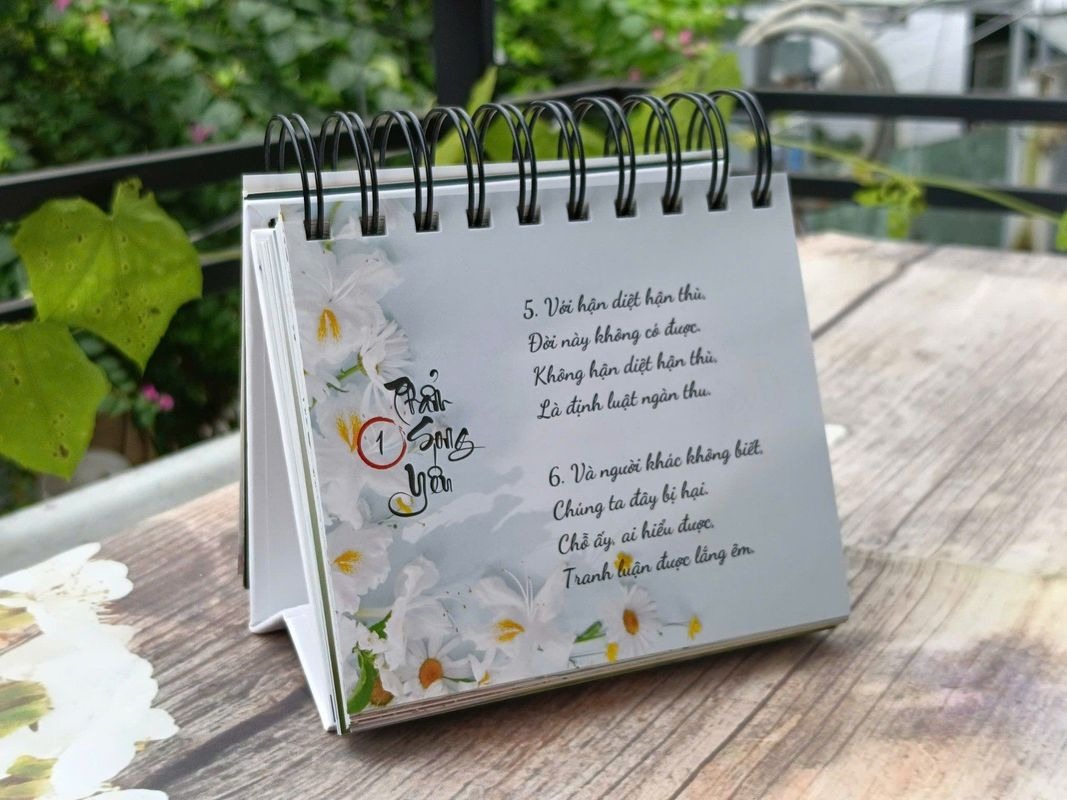 Phẩm
1 Song
Yếu
5. Với hận diệt hận thù,
Đời này không có được.
Không hận diệt hận thù,
Là định luật ngàn thu.
6. Và người khác không biết,
Chúng ta đây bị hại.
Chỗ ấy, ai hiểu được,
Tranh luận được lắng êm.